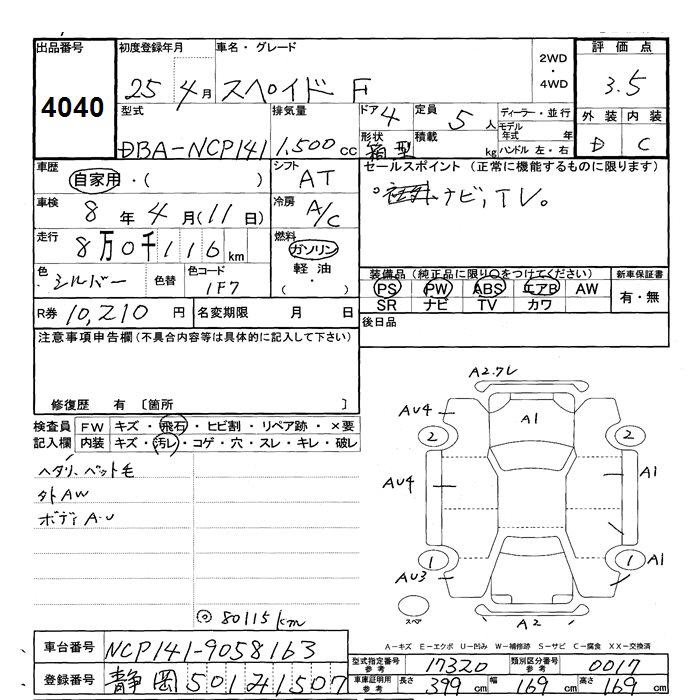 出品番号 4040
初度登録年月 25 4月
車名・グレード スペイド F
2WD・4WD
評価点 3.5
型式 DBA-NCP141
排気量 1,500cc
ドア 4
形状 箱型
定員 5人
積載 kg
ディーラー・並行
モデル年式 年
ハンドル 左・右
外装 内装
D C
車歴 自家用・( )
シフト AT
セールスポイント (正常に機能するものに限ります)
ナビ,TV。
車検 8年4月(11日)
冷房 A/C
走行 8万0千116km
燃料 ガソリン
軽油
( ・ )
色 シルバー 色替
色コード 1F7
装備品(純正品に限り○をつけてください)
PS PW ABS エアB AW
SR ナビ TV カワ
新車保証書
有・無
R券 10,210円
名変期限 月 日
後日品
注意事項申告欄(不具合内容等は具体的に記入して下さい)
修復歴 有 〔箇所 〕
検査員記入欄
FW キズ・飛石・ヒビ割・リペア跡・×要
内装 キズ・汚レ・コゲ・穴・スレ・キレ・破レ
ヘタリ、ペット毛
外AW
ボディA-U
◎80115km
A2.7レ
AU4
A1
2
2
AU4
A1
1
1
A1
AU3
スペア
A2
A-キズ E-エクボ U-凹み W-補修跡 S-サビ C-腐食 XX-交換済
車台番号 NCP141-9058163
登録番号 静岡501み1507
型式指定番号 参考 17320
類別区分番号 参考 0017
車庫証明用 参考
長さ 399cm 幅 169cm 高さ 169cm